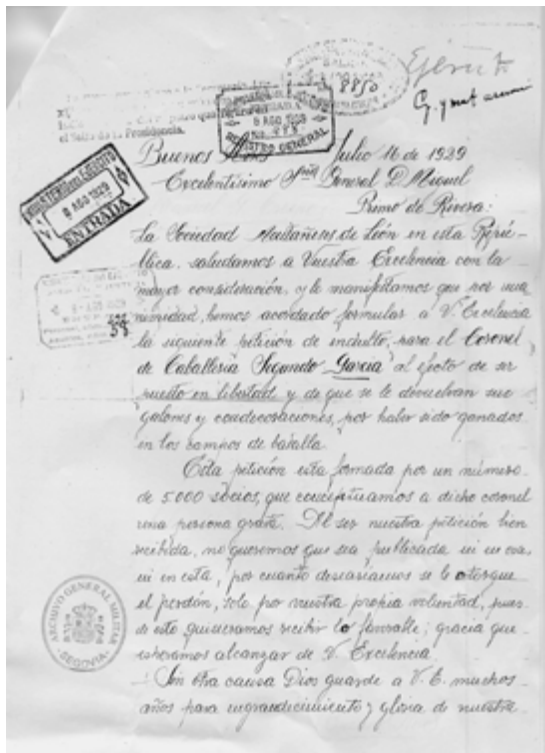 Ejérci
el Sello de la Presidencia.
8850
8 AGO 1929
REGISTRO GENERAL
MINISTERIO DEL EJERCITO
8 AGO 1929
ENTRADA
Buenos Aires Julio 16 de 1929
Excelentísimo Señor General D. Miguel
Primo de Rivera:
La Sociedad de León en esta Repú-
blica, saludamos a Vuestra Excelencia con la
mayor consideración, y le manifestamos que por una-
nimidad, hemos acordado formular a V. Excelencia
la siguiente petición de indulto, para el Coronel
de Caballería Segundo García al efecto de ser
puesto en libertad y de que se le devuelvan sus
galones y condecoraciones, por haber sido ganados
en los campos de batalla.
Esta petición esta formada por un número
de 5.000 socios, que conceptuamos a dicho coronel
una persona grata. Al ser nuestra petición bien
recibida, no queremos que sea publicada ni en esa,
ni en esta, por cuanto desearíamos se le otorgue
el perdón, solo por nuestra propia voluntad, pues
de esto quisieramos recibir lo favorable; gracia que
esperamos alcanzar de V. Excelencia.
Sin otra causa Dios guarde a V. E. muchos
años para engrandecimiento y gloria de nuestra
ARCHIVO GENERAL MILITAR
SEGOVIA